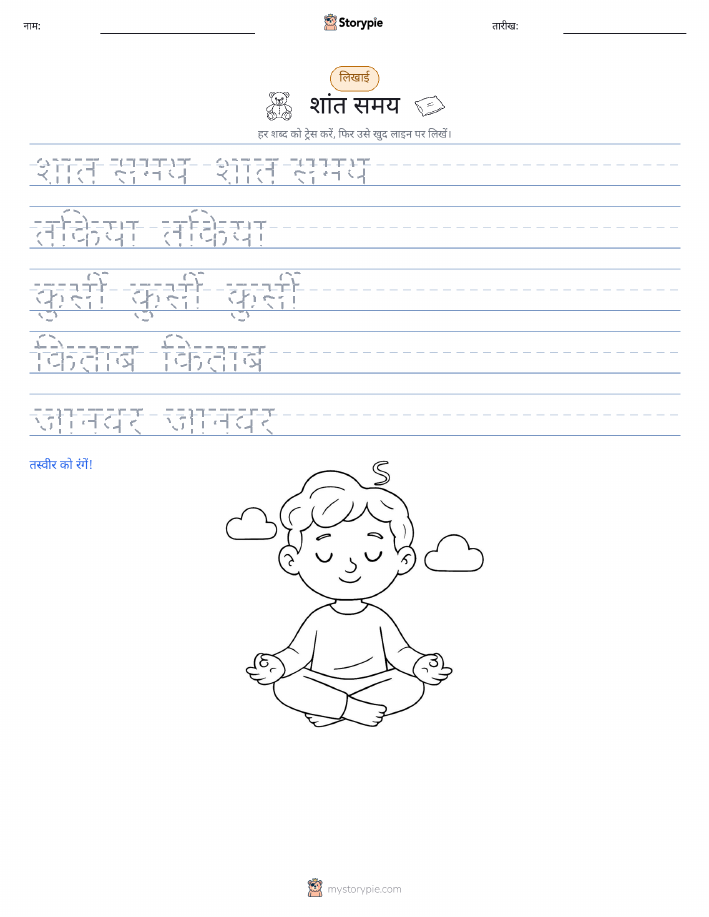 नाम:
Storypie
तारीख:
लिखाई
शांत समय
हर शब्द को ट्रेस करें, फिर उसे खुद लाइन पर लिखें।
शांत समय शांत समय
तकिया तकिया
कुर्सी कुर्सी कुर्सी
किताब किताब
जानवर जानवर
तस्वीर को रंगें!
mystorypie.com